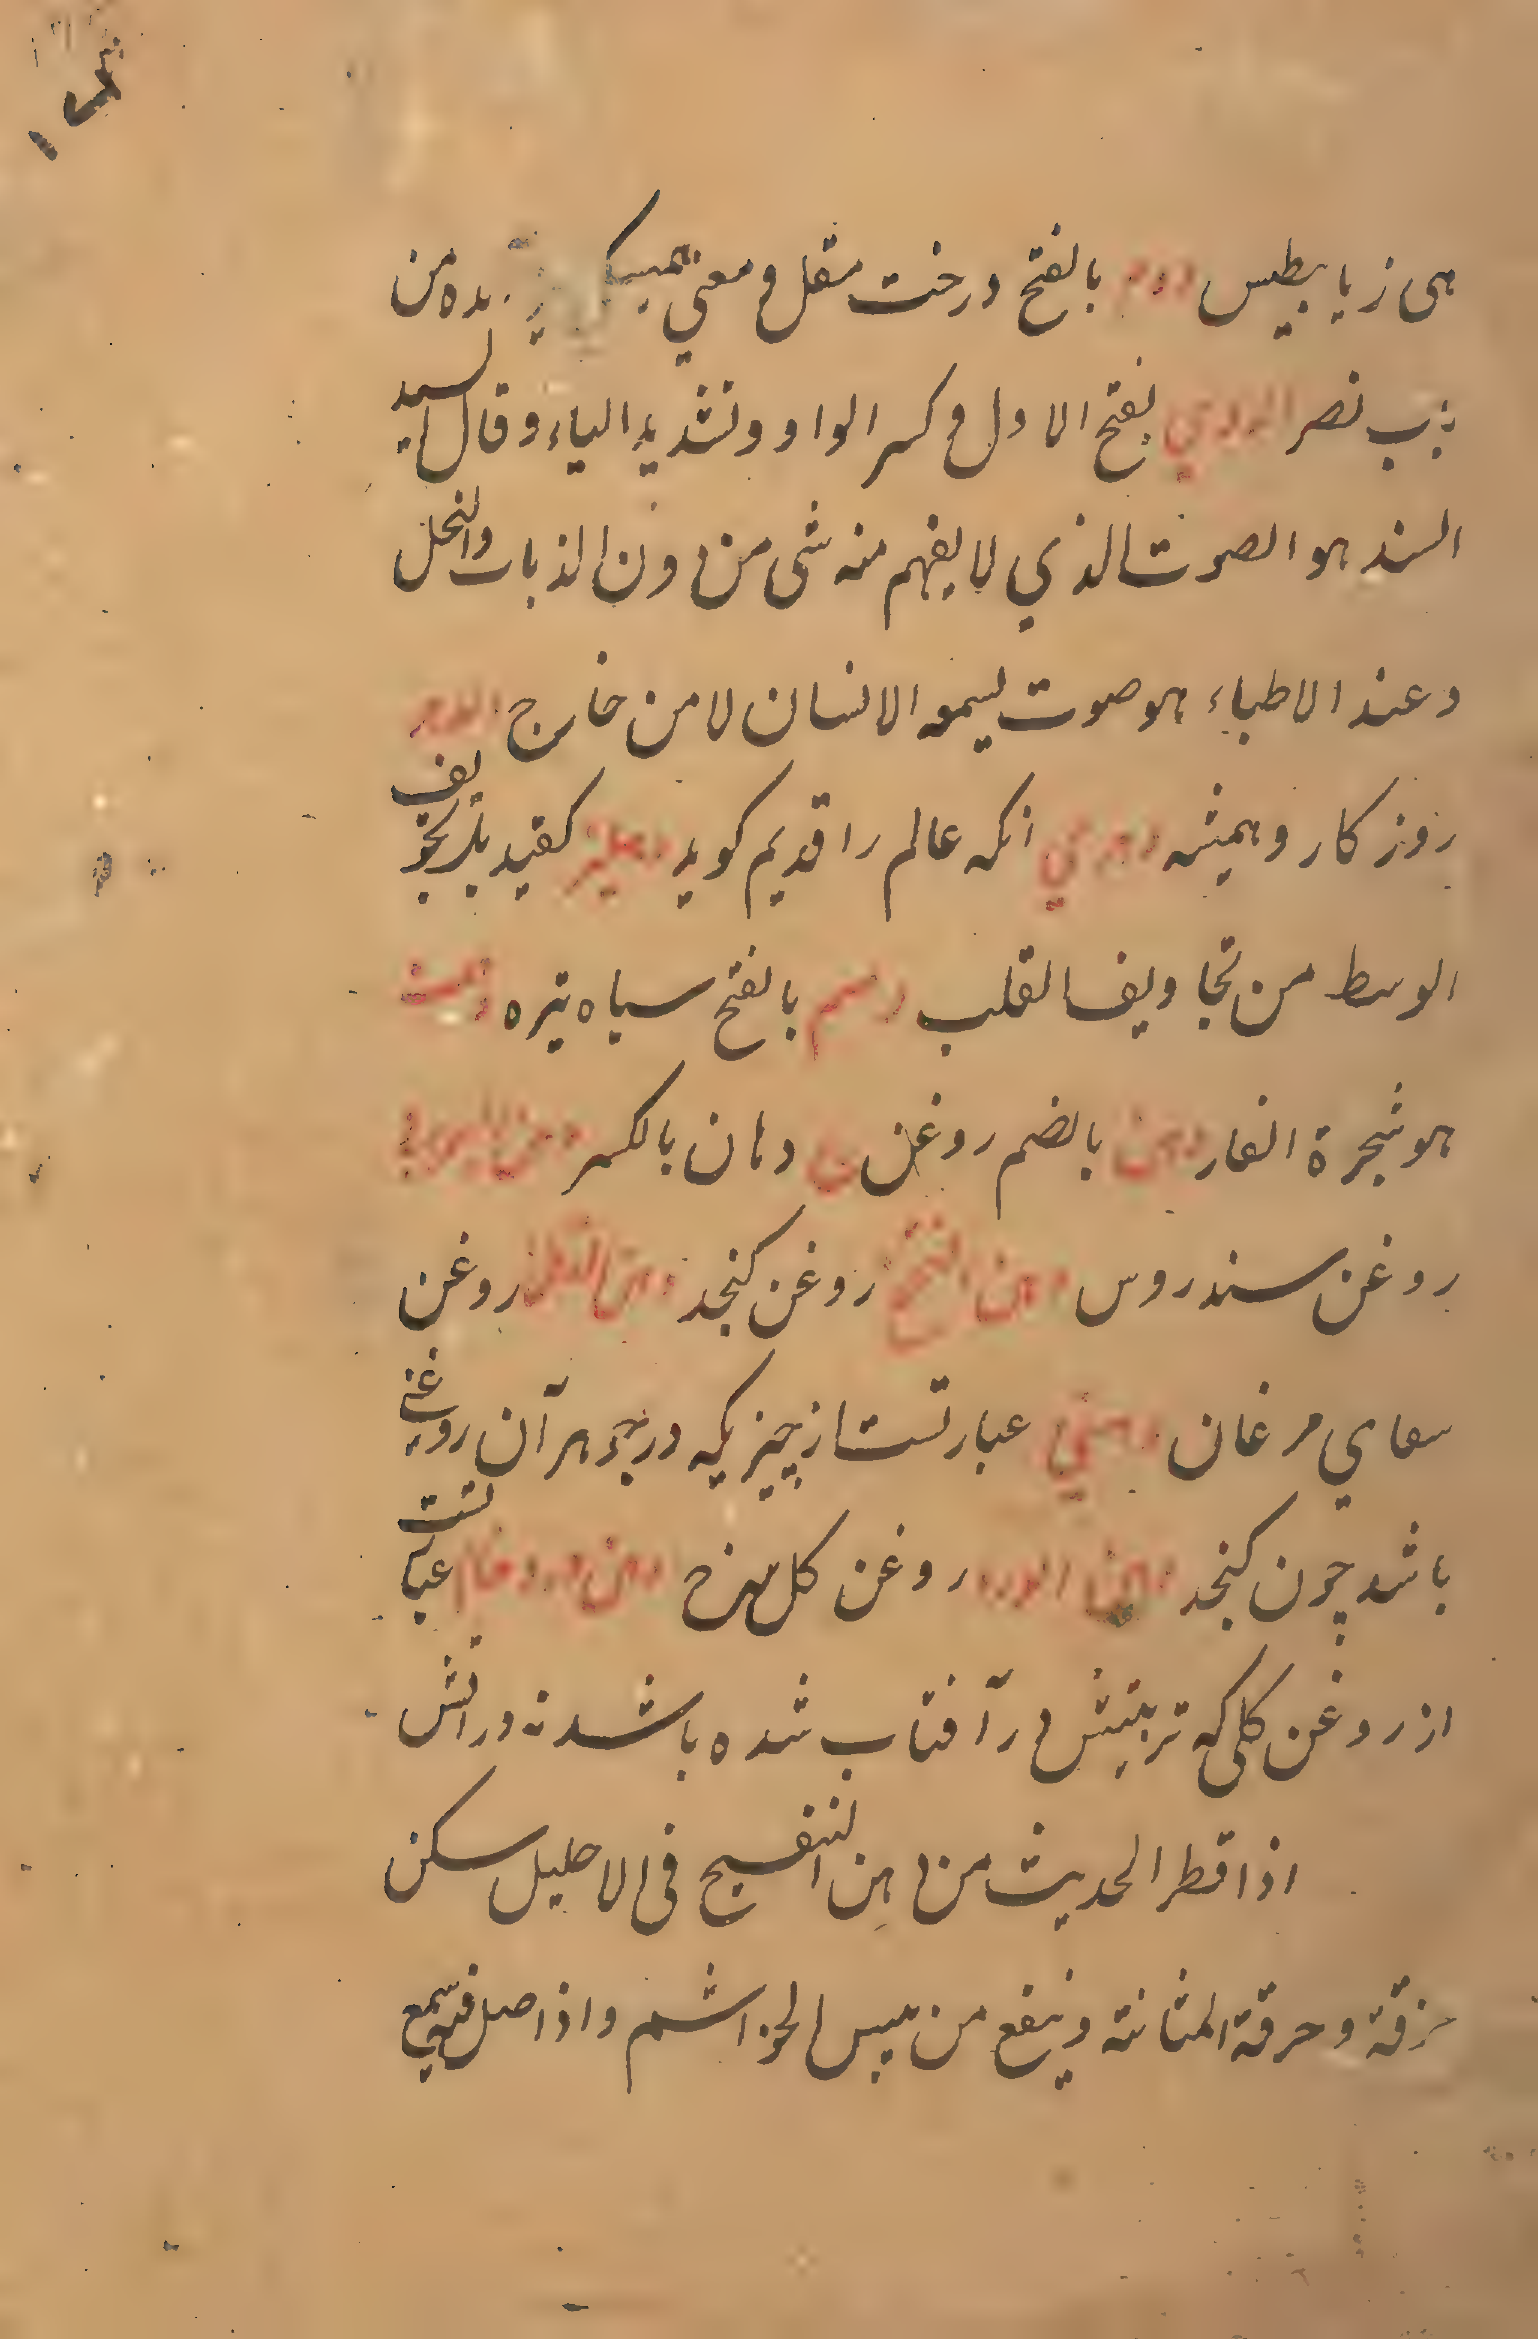 هی زیابیطیس دوم بالفتح درخت مقل و معنی همیشگی بده من
باب نصر الدوي بفتح الاول و کسر الواو و تشدید الیاء و قال السید
السند هو الصوت الذي لا یفهم منه شی من دون الذباب والنحل
و عند الاطباء هو صوت یسمعه الانسان لا من خارج الدهر
روز کار و همیشه دهري انکه عالم را قدیم کوید دهلیز کقندیل تجویف
الوسط من تجاویف القلب دسم بالفتح سیاه تیره دهمست
هو شجرة الغار دهن بالضم روغن ج دهان بالکسر
روغن سندروس دهن الفتح روغن کنجد روغن
سقاي مرغان دهني عبارتست از چیزیکه در جوهر آن روغنی
باشد چون کنجد دهن الورد روغن کل سرخ دهن ورد خام عبارتست
از روغن کلی که تربیتش در آفتاب شده باشد نه در اتش
اذا قطر الحدیث من دهن البنفسج فی الاحلیل سکن
حرقة و حرقة المثانة و ینفع من یبس الخواشم و اذا